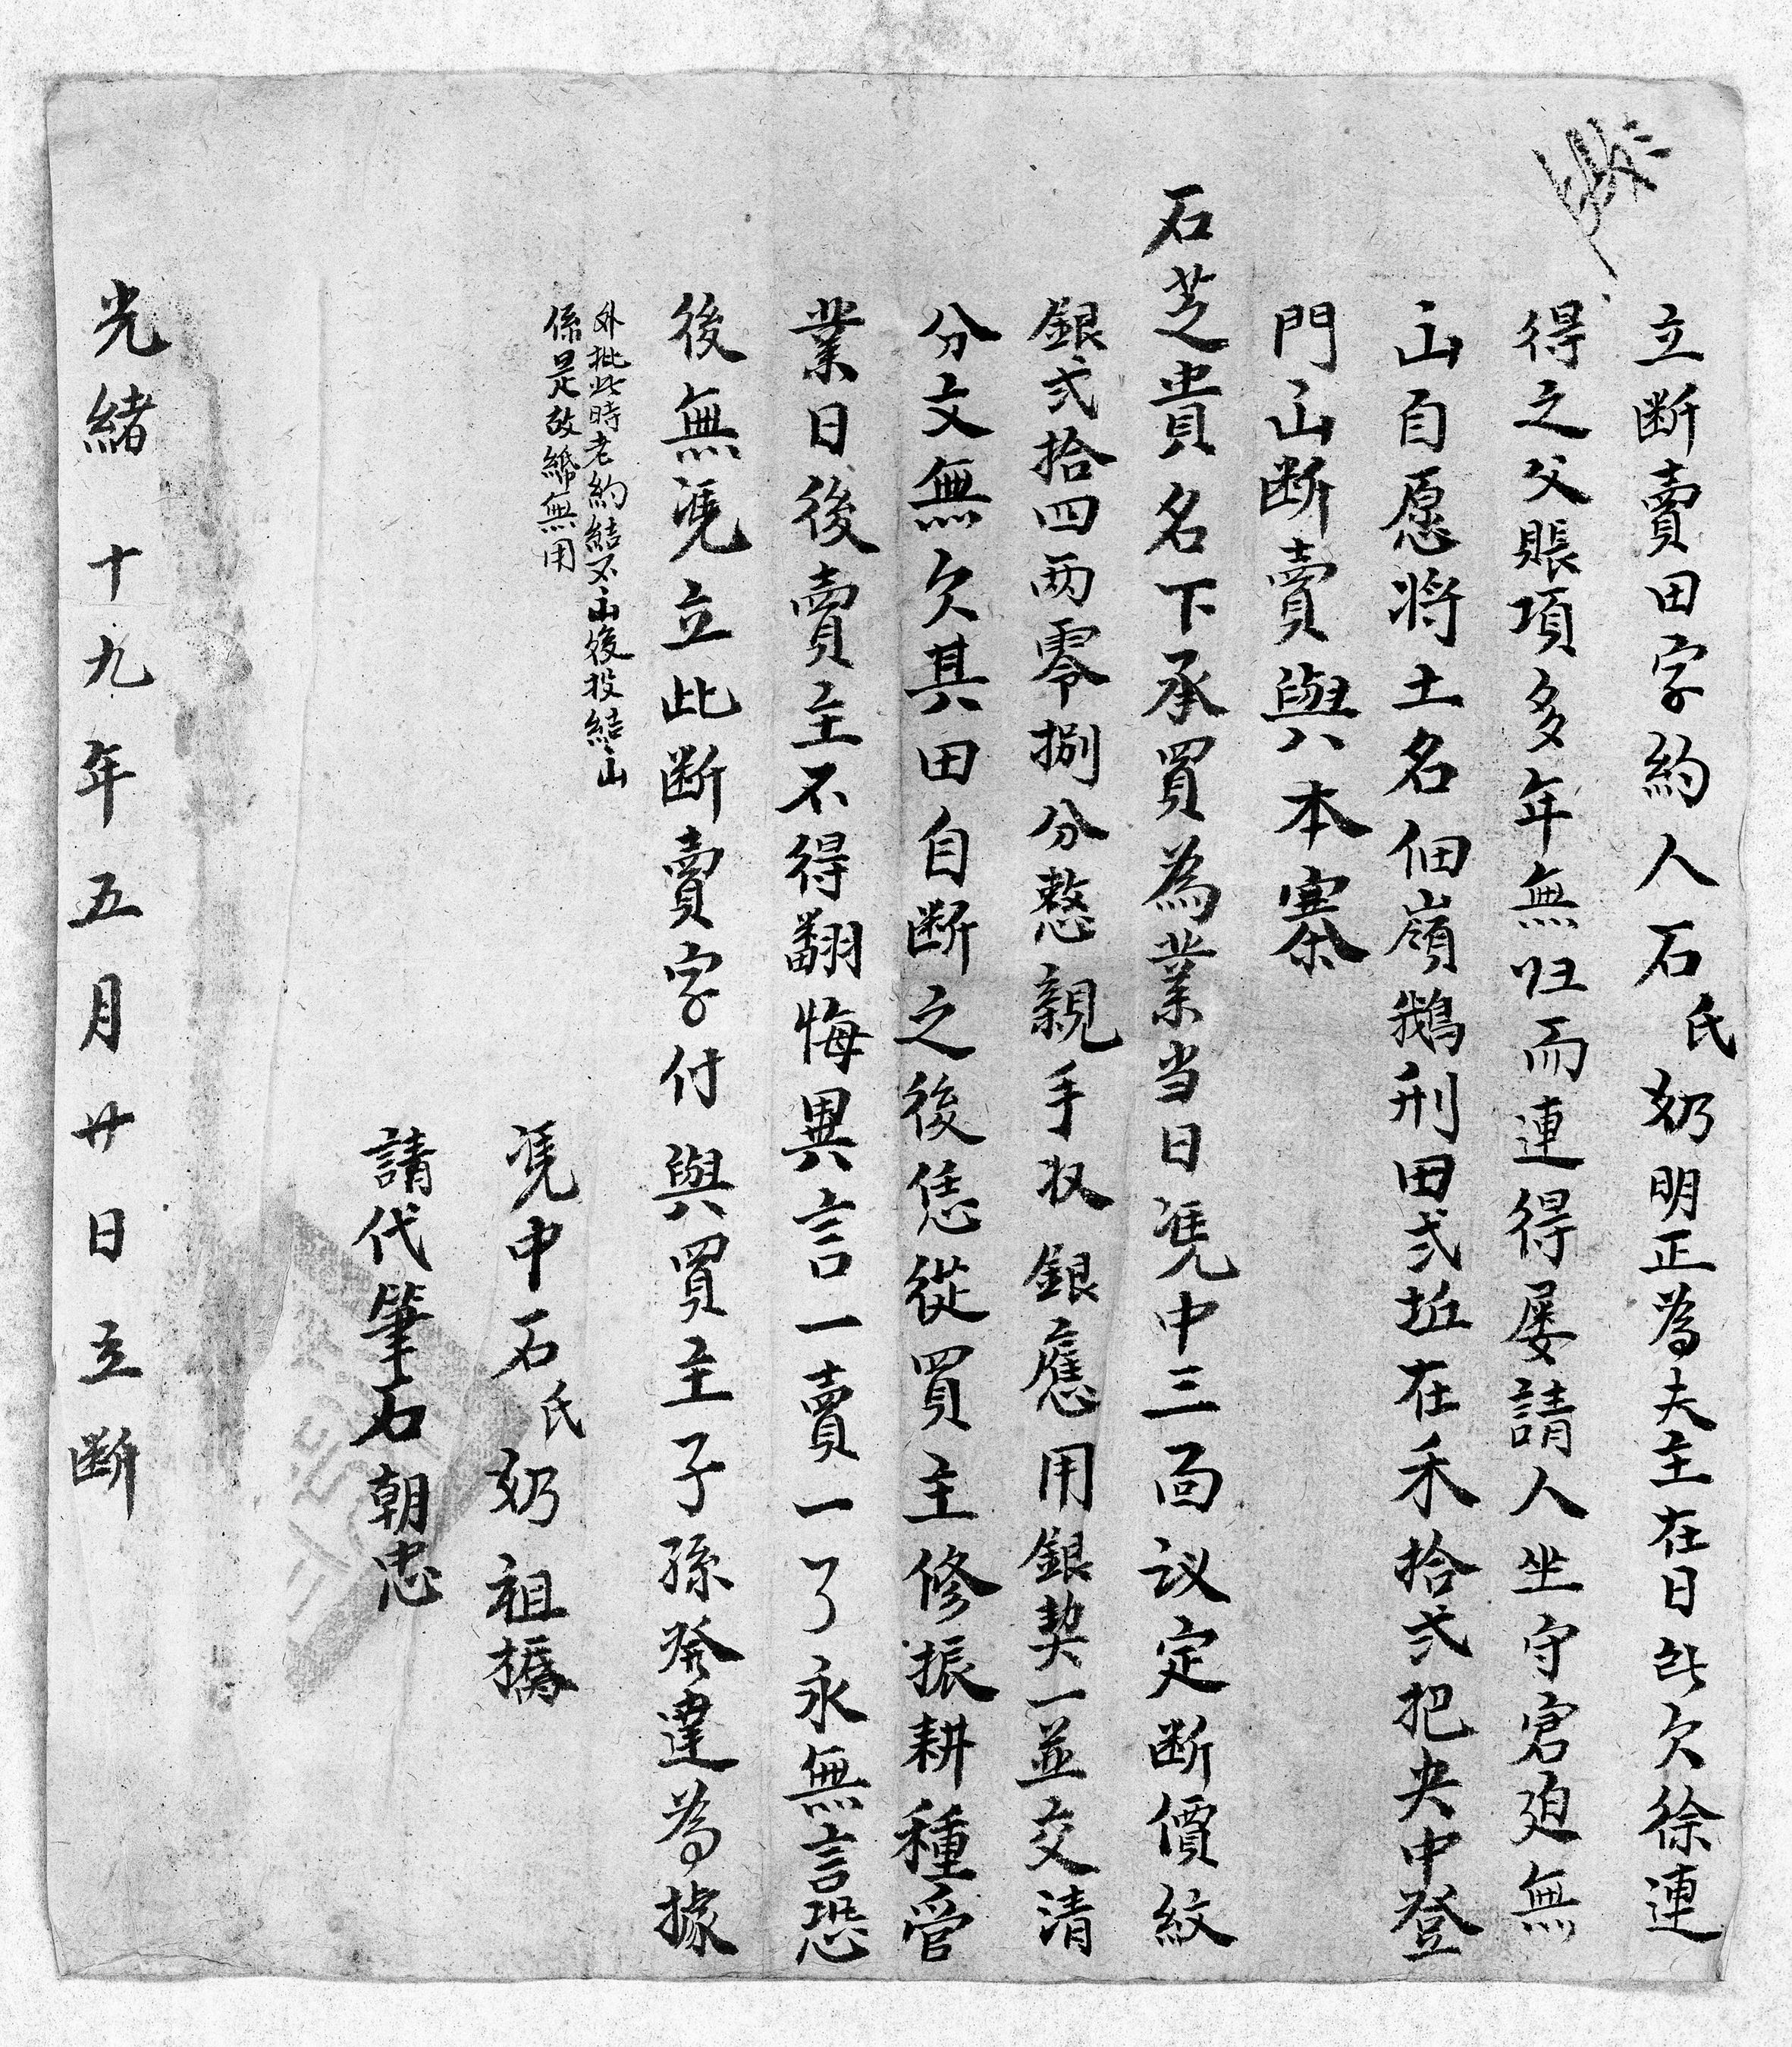 立断賣田字約人石氏奶明正為夫主在日欠徐連
得之父賬項多年無归而連得屡請人坐守窘迫無
𠙖自愿将土名佃嶺鵝刑田弍坵在禾拾弍把央中登
門𠙖断賣與本寨
石芝貴名下承買為業当日凴中三面议定断價紋
銀弍拾四两零捌分整親手收銀應用銀契一並交清
分文無欠其田自断之後恁從買主修振耕種管
業日後賣主不得翻悔異言一賣一了永無言恐
後無凴立此断賣字付與買主子孫發達為據
外批此時老約結不𠙖後投結𠙖
係是故紙無用
凴中石氏奶祖撝
請代筆石朝忠
光緒十九年五月廿日立断